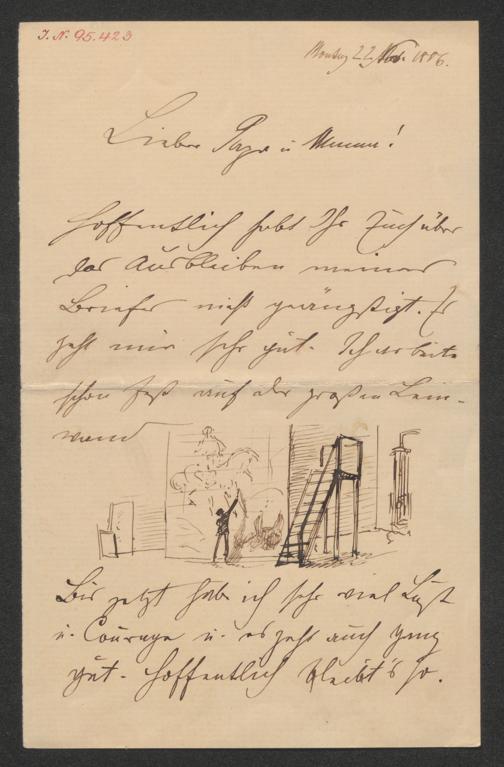 J. N. 95.423
Montag 22 Nov. 1886.
Lieber Papa u Mama!
Hoffentlich habt Ihr Euch über
das Ausbleiben meiner
Briefe nicht geängstigt. Es
geht mir sehr gut. Ich arbeite
schon fest auf der großen Lein-
wand
Bis jetzt habe ich sehr viel Lust
u. Courage u. es geht auch ganz
gut. Hoffentlich bleibt's so.